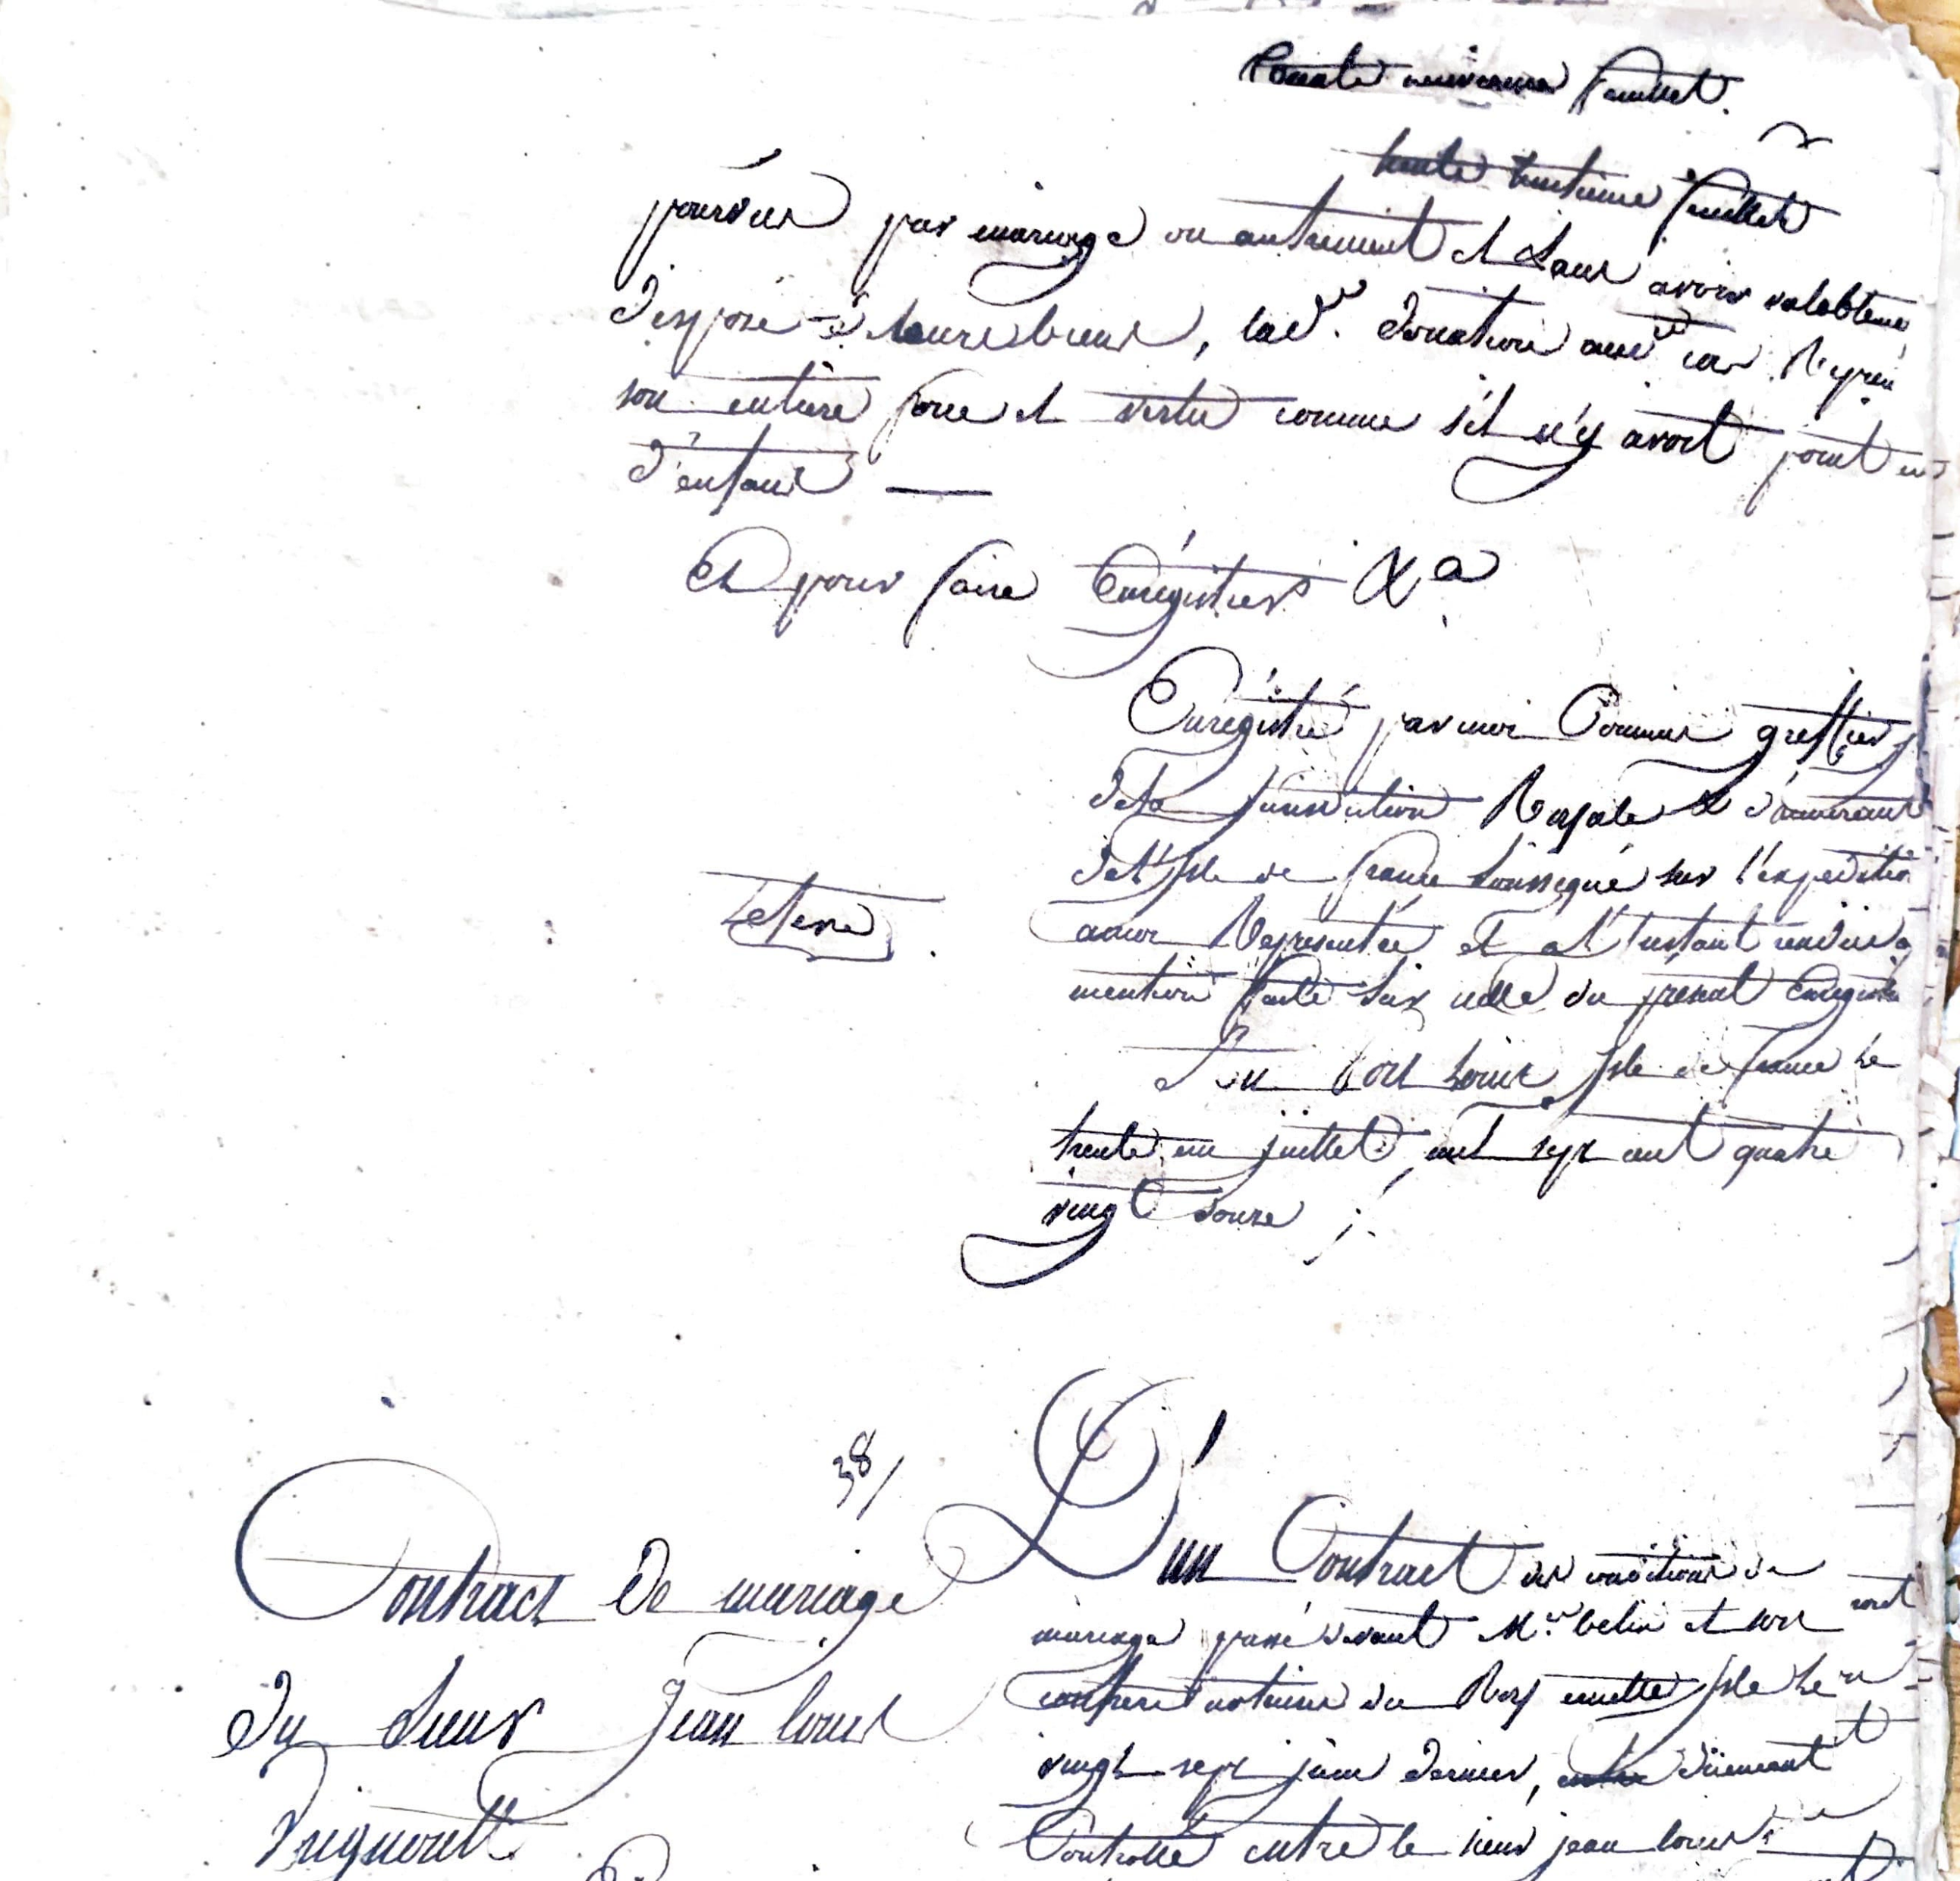 trente neuvieme feuillet.
trente huitieme feuillet
pourvus par mariage ou autrement et sans avoir valablem
disposé de leurs biens, lad. donation aud. cas repren
son entiere force et vertu comme s'il n'y avoit point eu
d'enfans —
Et pour faire Enrégistrer &a
Enrégistré par moi Commis greffier
de la Jurisdiction Royale & d'amirauté
de l'Isle de france soussigné sur l'expedition
a moi Représentée et a l'instant rendue
mention faite sur icelle du présent Enregist
Au Port Louis Isle de france le
trente un juillet, mil sept cent quatre
vingt douze
38/
Contract De mariage
Du Sieur Jean Louis
D'un Contract des conditions de
mariage passé devant Me. belin et son
confrere notaires du Roy en cette Isle le
vingt sept juin dernier, düement
Controllé entre le sieur jean louis